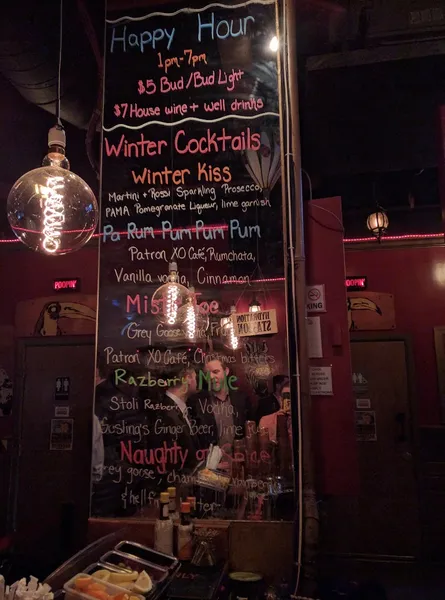 Happy Hour
1pm-7pm
$5 Bud/Bud Light
$7 House wine + well drinks
Winter Cocktails
Winter Kiss
Martini + Rossi Sparkling Prosecco,
PAMA Pomegranate Liqueur, lime garnish
Pa Rum Pum Pum Pum
Patron XO Cafe, Rumchata,
Vanilla vodka, Cinnamon
Grey Goose
Patron XO Café, Christmas bitters
Razberry Mule
Stoli Razberry Vodka,
Gosling's Ginger Beer, lime
Naughty or
grey goose,
POOPIN'
POOPIN'